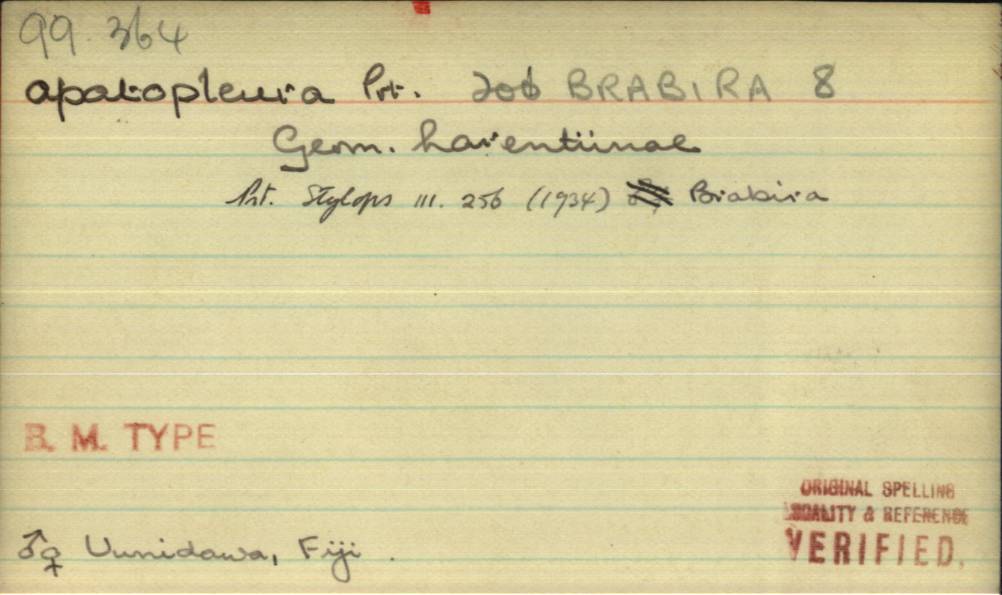 99.364
apatopleura Prt. 206 BRABIRA 8
Geom. Larentiinae
Prt. Stylops III. 256 (1934) Brabira
B. M. TYPE
ORIGINAL SPELLING
LOCALITY & REFERENCE
VERIFIED.
♂♀ Vunidawa, Fiji.